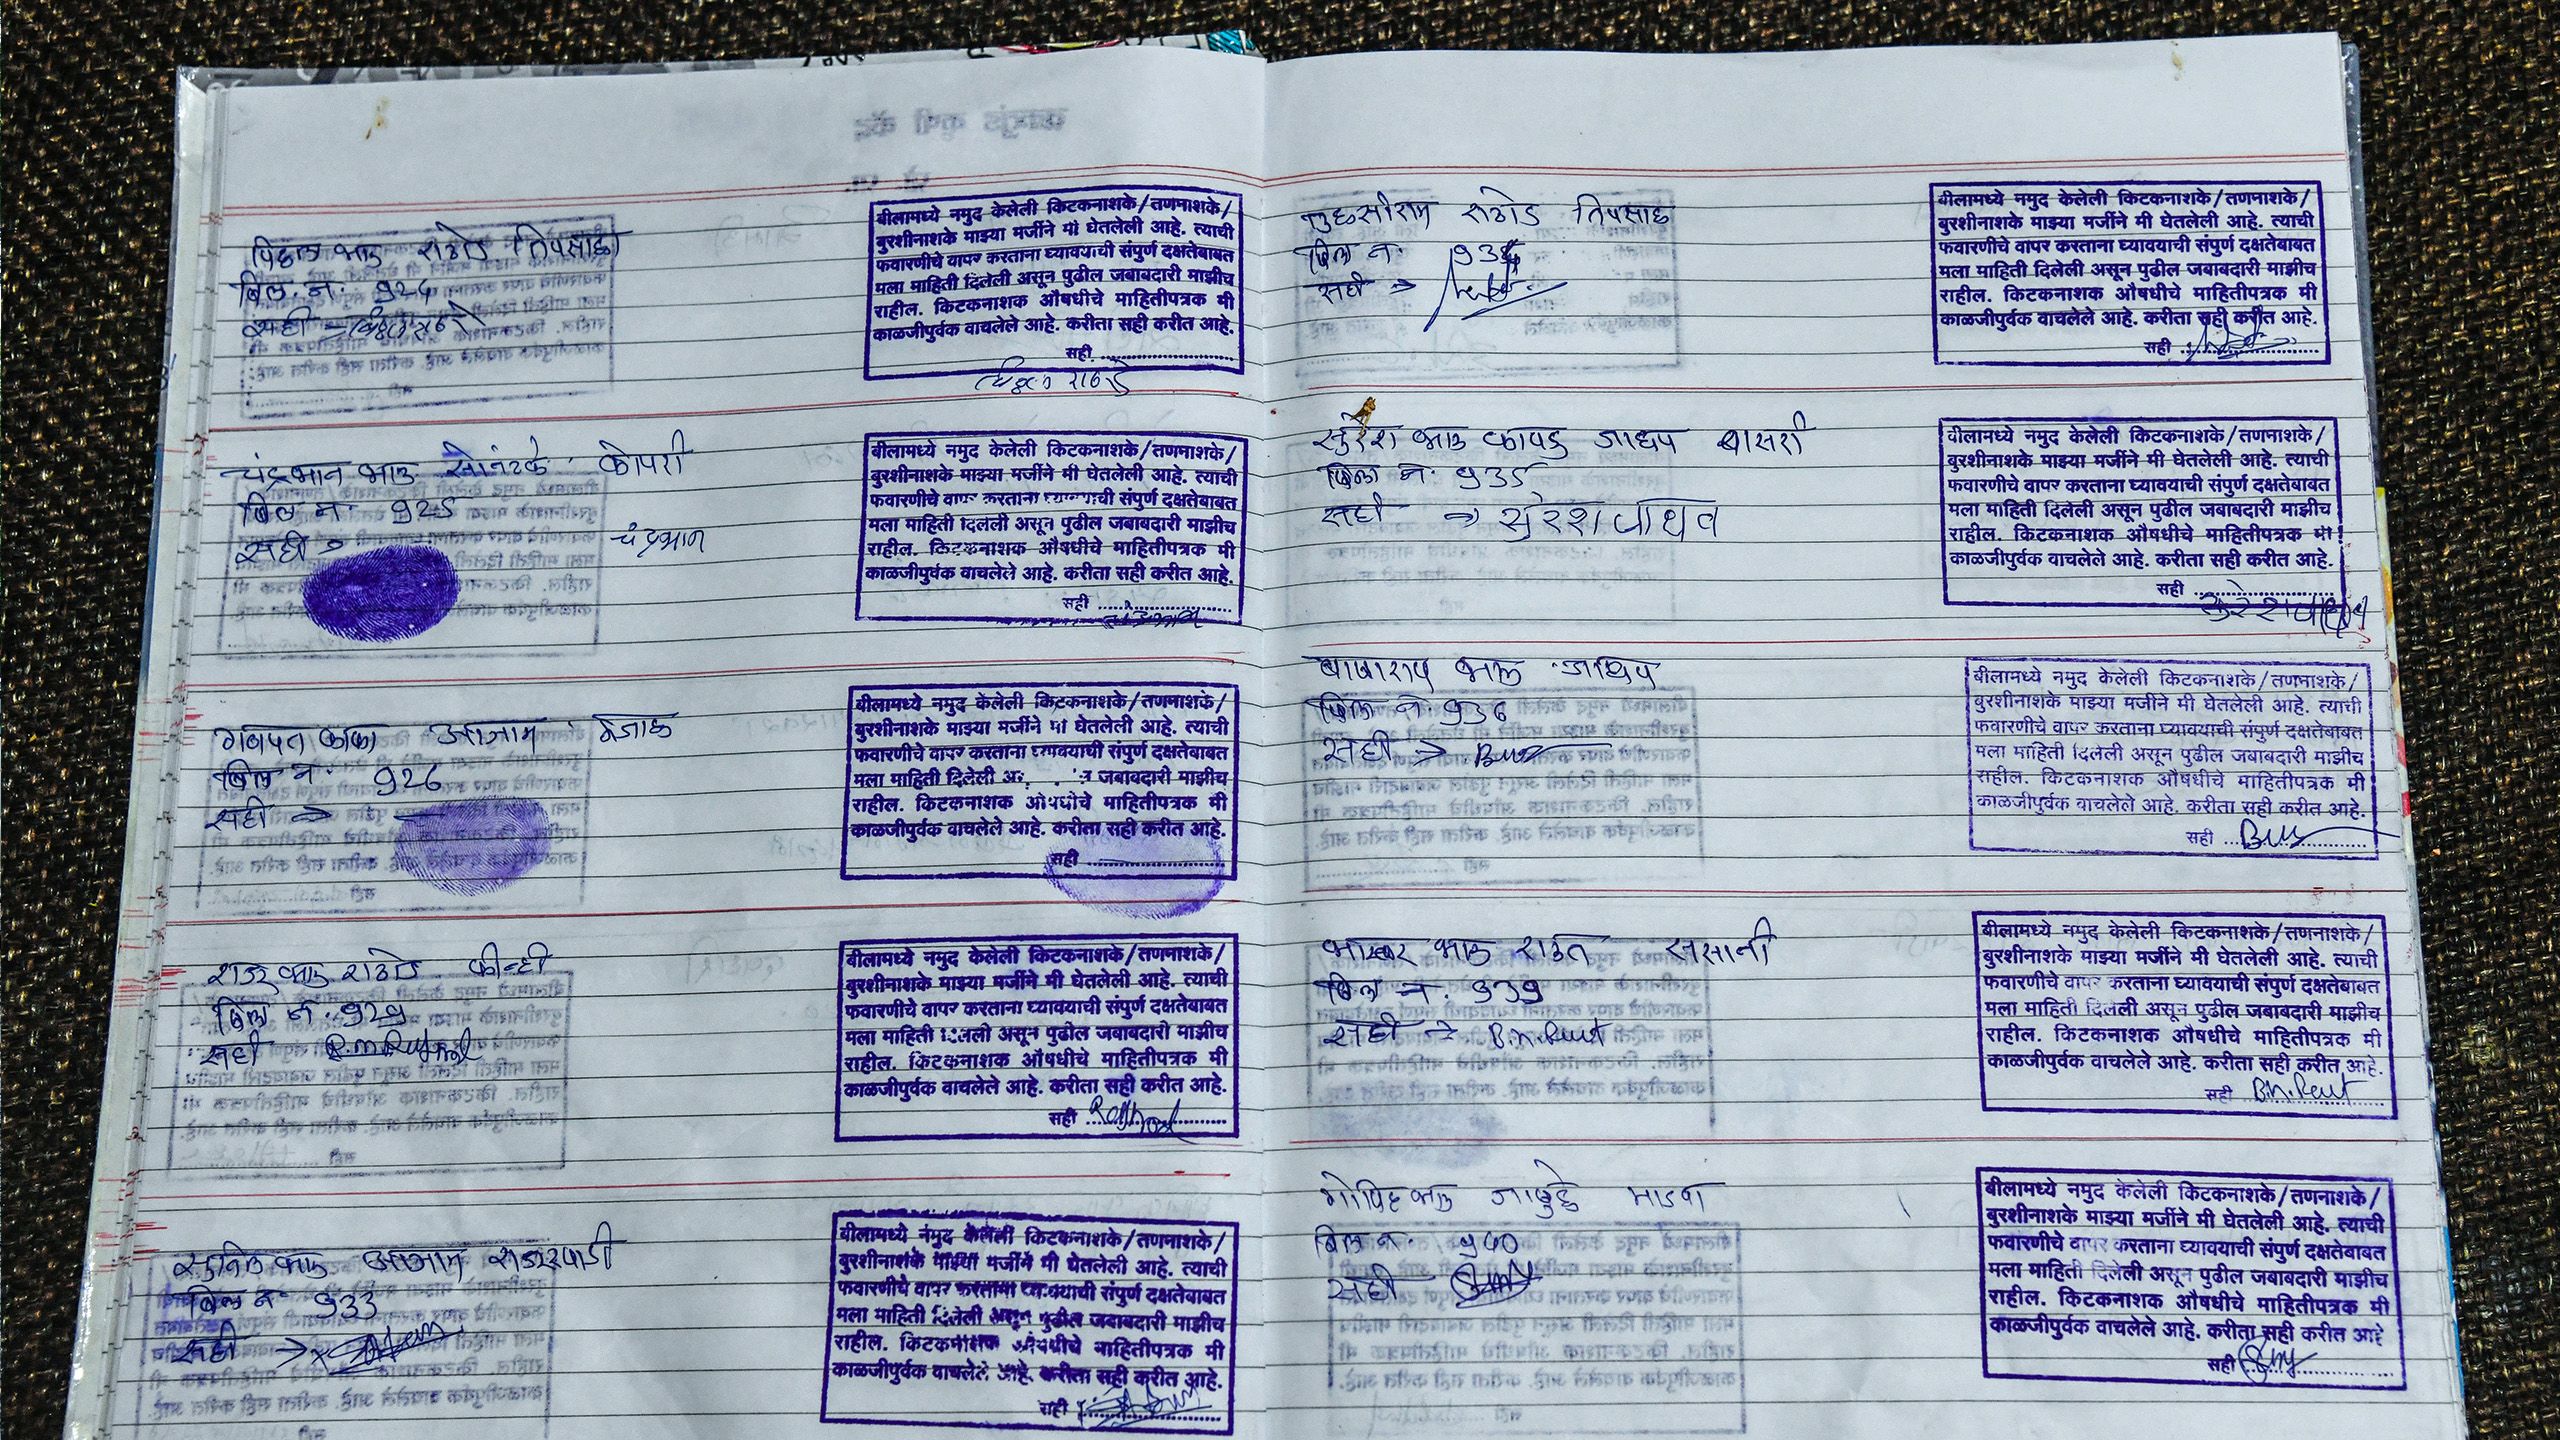 विठ्ठल भाऊ राठोड तिवसाळा
बिल न. 924
सही विठ्ठल राठोड
बीलामध्ये नमुद केलेली किटकनाशके/तणनाशके/
बुरशीनाशके माझ्या मर्जीने मी घेतलेली आहे. त्याची
फवारणीचे वापर करताना घ्यावयाची संपुर्ण दक्षतेबाबत
मला माहिती दिलेली असून पुढील जबाबदारी माझीच
राहील. किटकनाशक औषधीचे माहितीपत्रक मी
काळजीपुर्वक वाचलेले आहे. करीता सही करीत आहे.
सही
विठ्ठल राठोड
चंद्रभान भाऊ सोनटक्के कोपरी
बिल न. 925
सही → चंद्रभान
बीलामध्ये नमुद केलेली किटकनाशके/तणनाशके/
बुरशीनाशके माझ्या मर्जीने मी घेतलेली आहे. त्याची
फवारणीचे वापर करताना घ्यावयाची संपुर्ण दक्षतेबाबत
मला माहिती दिलेली असून पुढील जबाबदारी माझीच
राहील. किटकनाशक औषधीचे माहितीपत्रक मी
काळजीपुर्वक वाचलेले आहे. करीता सही करीत आहे.
सही
गणपत काका आत्राम
बिल न. 926
सही →
बीलामध्ये नमुद केलेली किटकनाशके/तणनाशके/
बुरशीनाशके माझ्या मर्जीने मी घेतलेली आहे. त्याची
फवारणीचे वापर करताना घ्यावयाची संपुर्ण दक्षतेबाबत
मला माहिती दिलेली जबाबदारी माझीच
राहील. किटकनाशक औषधीचे माहितीपत्रक मी
काळजीपुर्वक वाचलेले आहे. करीता सही करीत आहे.
सही
भाऊ राठोड कीन्ही
बिल न. 929
सही
बीलामध्ये नमुद केलेली किटकनाशके/तणनाशके/
बुरशीनाशके माझ्या मर्जीने मी घेतलेली आहे. त्याची
फवारणीचे वापर करताना घ्यावयाची संपुर्ण दक्षतेबाबत
मला माहिती दिलेली असून पुढील जबाबदारी माझीच
राहील. किटकनाशक औषधीचे माहितीपत्रक मी
काळजीपुर्वक वाचलेले आहे. करीता सही करीत आहे.
सही
सुनिल भाऊ आत्राम
बिल न. 933
सही →
बीलामध्ये नमुद केलेली किटकनाशके/तणनाशके/
बुरशीनाशके माझ्या मर्जीने मी घेतलेली आहे. त्याची
फवारणीचे वापर करताना घ्यावयाची संपुर्ण दक्षतेबाबत
मला माहिती दिलेली असून पुढील जबाबदारी माझीच
राहील. किटकनाशक औषधीचे माहितीपत्रक मी
काळजीपुर्वक वाचलेले आहे. करीता सही करीत आहे.
सही
तुळसीराम राठोड तिवसाळा
बिल न.
सही →
बीलामध्ये नमुद केलेली किटकनाशके/तणनाशके/
बुरशीनाशके माझ्या मर्जीने मी घेतलेली आहे. त्याची
फवारणीचे वापर करताना घ्यावयाची संपुर्ण दक्षतेबाबत
मला माहिती दिलेली असून पुढील जबाबदारी माझीच
राहील. किटकनाशक औषधीचे माहितीपत्रक मी
काळजीपुर्वक वाचलेले आहे. करीता सही करीत आहे.
सही
सुरेश भाऊ कापडु जाधव बासरी
बिल न. 935
सही → सुरेश जाधव
बीलामध्ये नमुद केलेली किटकनाशके/तणनाशके/
बुरशीनाशके माझ्या मर्जीने मी घेतलेली आहे. त्याची
फवारणीचे वापर करताना घ्यावयाची संपुर्ण दक्षतेबाबत
मला माहिती दिलेली असून पुढील जबाबदारी माझीच
राहील. किटकनाशक औषधीचे माहितीपत्रक मी
काळजीपुर्वक वाचलेले आहे. करीता सही करीत आहे.
सही
सुरेश जाधव
बाबाराव भाऊ जाधव
बिल न. 936
सही →
बीलामध्ये नमुद केलेली किटकनाशके/तणनाशके/
बुरशीनाशके माझ्या मर्जीने मी घेतलेली आहे. त्याची
फवारणीचे वापर करताना घ्यावयाची संपुर्ण दक्षतेबाबत
मला माहिती दिलेली असून पुढील जबाबदारी माझीच
राहील. किटकनाशक औषधीचे माहितीपत्रक मी
काळजीपुर्वक वाचलेले आहे. करीता सही करीत आहे.
सही
भास्कर भाऊ राऊत ससानी
बिल न. 939
सही → B.N.Raut
बीलामध्ये नमुद केलेली किटकनाशके/तणनाशके/
बुरशीनाशके माझ्या मर्जीने मी घेतलेली आहे. त्याची
फवारणीचे वापर करताना घ्यावयाची संपुर्ण दक्षतेबाबत
मला माहिती दिलेली असून पुढील जबाबदारी माझीच
राहील. किटकनाशक औषधीचे माहितीपत्रक मी
काळजीपुर्वक वाचलेले आहे. करीता सही करीत आहे.
सही B.N.Raut
गोविंद भाऊ
बिल न. 940
सही
बीलामध्ये नमुद केलेली किटकनाशके/तणनाशके/
बुरशीनाशके माझ्या मर्जीने मी घेतलेली आहे. त्याची
फवारणीचे वापर करताना घ्यावयाची संपुर्ण दक्षतेबाबत
मला माहिती दिलेली असून पुढील जबाबदारी माझीच
राहील. किटकनाशक औषधीचे माहितीपत्रक मी
काळजीपुर्वक वाचलेले आहे. करीता सही करीत आहे.
सही